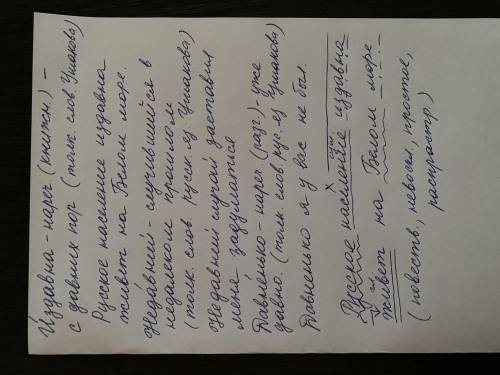 Издавна - нареч (книжн.) -
с давних пор (толк. слов Ушакова)
Русское население издавна
живет на Белом море.
Недавний - случившийся в
недалеком прошлом
(толк. слов русск. яз. Ушакова)
Недавний случай заставил
меня задуматься
Давненько - нареч (разг) - уже
давно. (толк. слов. рус. яз Ушакова)
Давненько я у вас не был.
сущ.
Русское население издавна
живет на Белом море
(повеств., невоскл., простое,
распростр.)